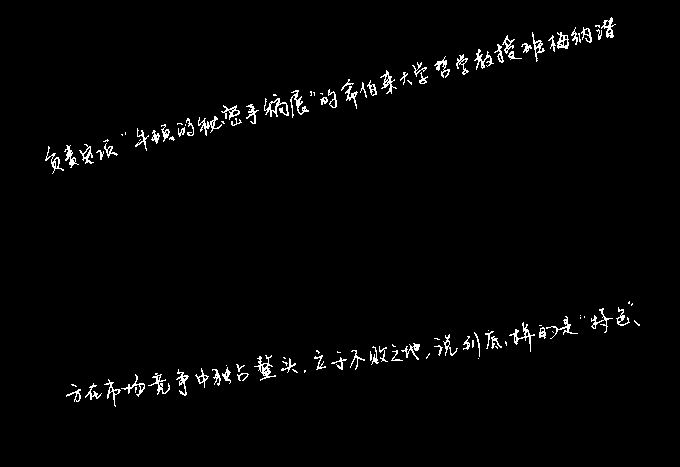 负责这项“牛顿的秘密手稿展”的希伯来大学哲学教授班梅纳潜
方在市场竞争中独占鳌头、立于不败之地，说到底，拼的是“特色、